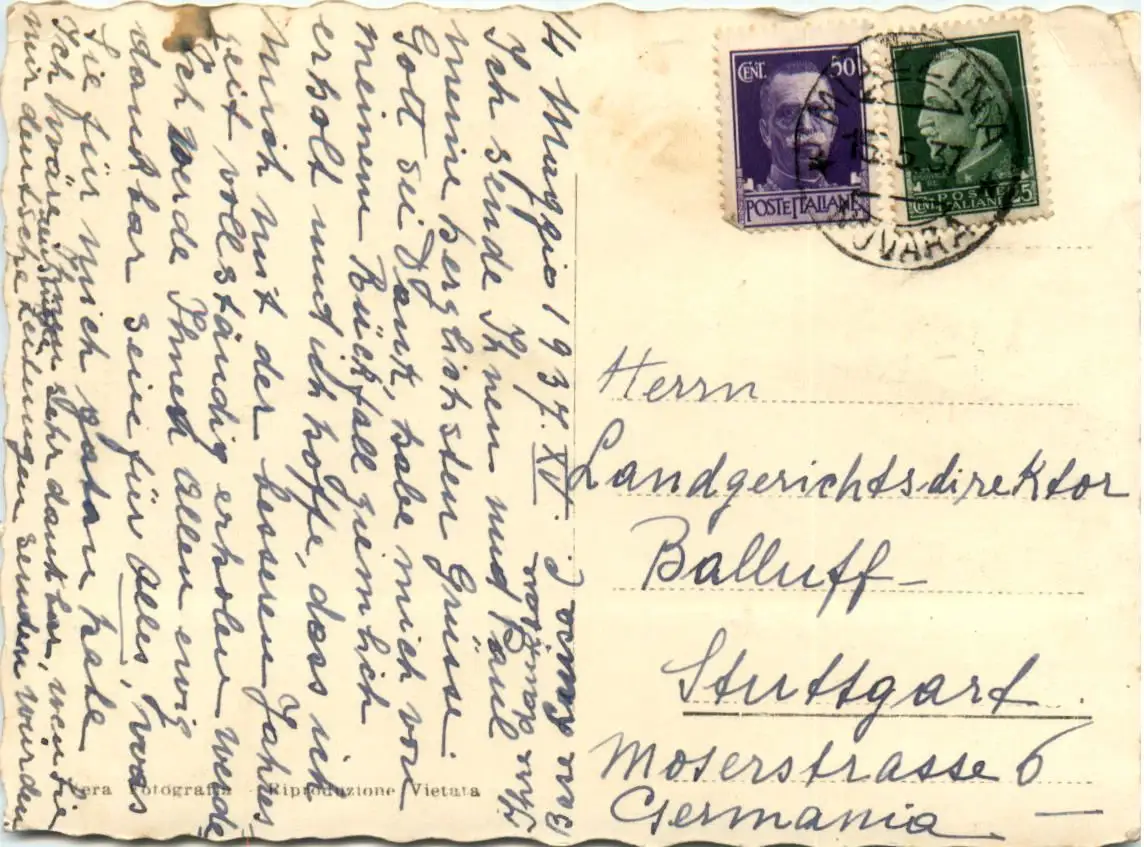 14 Maggio 1937. XV.
Ich sende Ihnen und Paul
meine herzlichsten Grüsse.
Gott sei Dank, habe mich von
meinem Rückfall ziemlich
erholt und ich hoffe, dass ich
mich mit der besseren Jahres
zeit vollständig erholen werde
Ich werde Ihnen Allen ewig
dankbar sein für alles, was
Sie für mich getan habe
Ich wäre Ihnen sehr dankbar, wenn Sie
mir deutsche Zeitungen senden würden
Ihre dankbare
Vera Fotografia - Riproduzione Vietata
CENT. 50
POSTE ITALIANE
POSTE
CENT. ITALIANE 25
15.5.37
NOVARA
Herrn
Landgerichtsdirektor
Balluff
Stuttgart
Moserstrasse 6
Germania